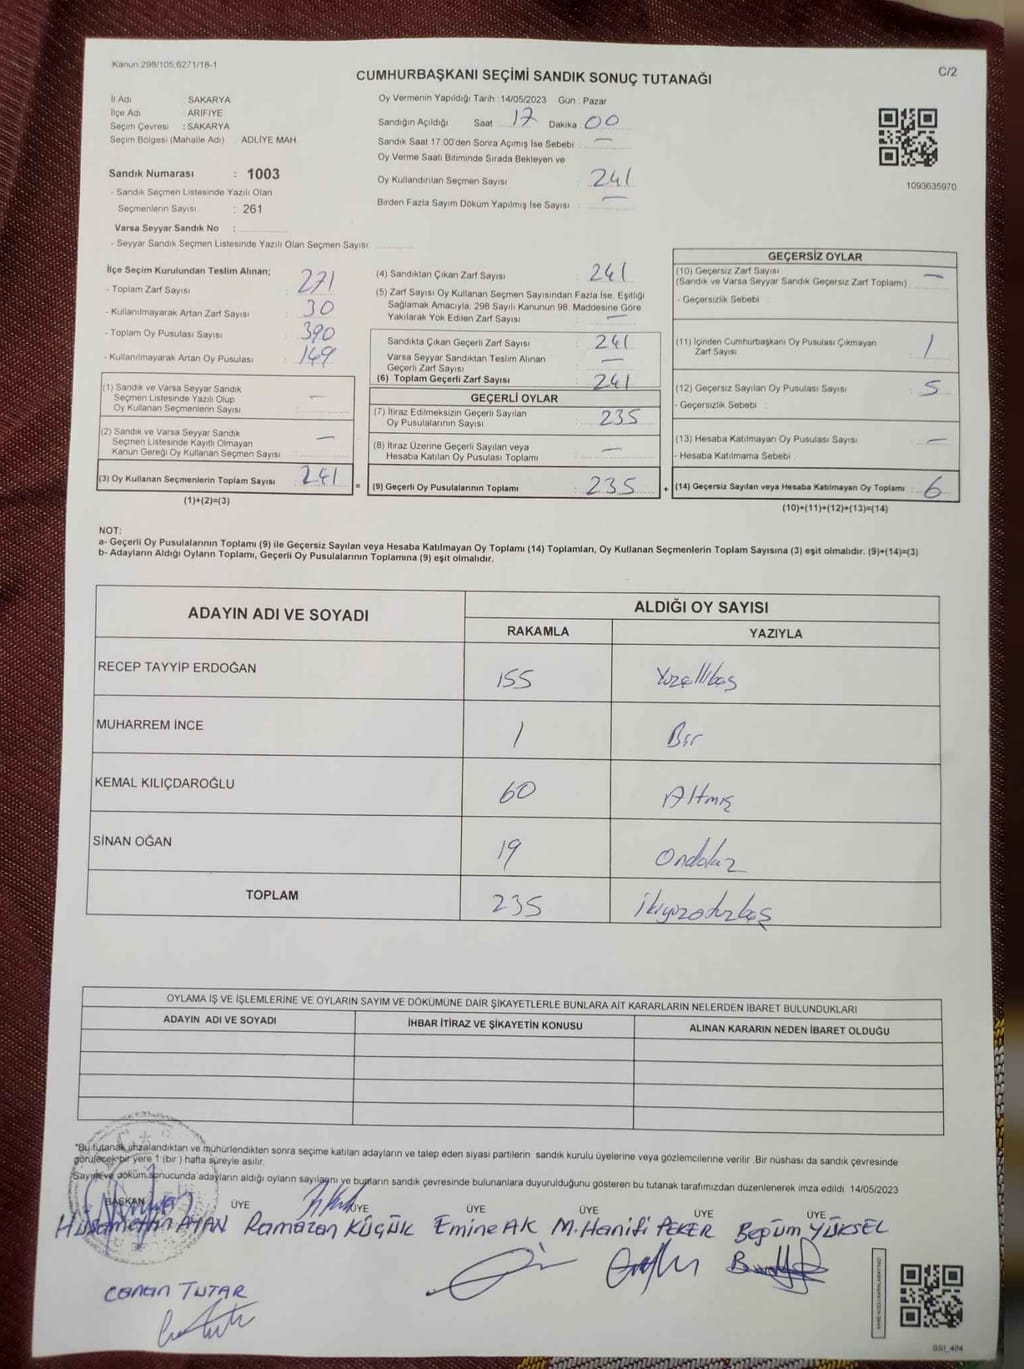 Kanun:298/105,6271/18-1
C/2
CUMHURBAŞKANI SEÇİMİ SANDIK SONUÇ TUTANAĞI
İl Adı SAKARYA
İlçe Adı ARİFİYE
Seçim Çevresi : SAKARYA
Seçim Bölgesi (Mahalle Adı) : ADLİYE MAH
Sandık Numarası : 1003
- Sandık Seçmen Listesinde Yazılı Olan
Seçmenlerin Sayısı : 261
Varsa Seyyar Sandık No :
- Seyyar Sandık Seçmen Listesinde Yazılı Olan Seçmen Sayısı:
Oy Vermenin Yapıldığı Tarih : 14/05/2023 Gün : Pazar
Sandığın Açıldığı Saat 17 Dakika 00
Sandık Saat 17.00'den Sonra Açımış İse Sebebi : —
Oy Verme Saati Bitiminde Sırada Bekleyen ve
Oy Kullandırılan Seçmen Sayısı : 241
Birden Fazla Sayım Döküm Yapılmış İse Sayısı : —
1093635970
İlçe Seçim Kurulundan Teslim Alınan;
- Toplam Zarf Sayısı : 271
- Kullanılmayarak Artan Zarf Sayısı : 30
- Toplam Oy Pusulası Sayısı : 390
- Kullanılmayarak Artan Oy Pusulası : 149
(1) Sandık ve Varsa Seyyar Sandık
Seçmen Listesinde Yazılı Olup
Oy Kullanan Seçmenlerin Sayısı : —
(2) Sandık ve Varsa Seyyar Sandık
Seçmen Listesinde Kayıtlı Olmayan
Kanun Gereği Oy Kullanan Seçmen Sayısı : —
(3) Oy Kullanan Seçmenlerin Toplam Sayısı : 241
(1)+(2)=(3)
=
(4) Sandıktan Çıkan Zarf Sayısı : 241
(5) Zarf Sayısı Oy Kullanan Seçmen Sayısından Fazla İse, Eşitliği
Sağlamak Amacıyla, 298 Sayılı Kanunun 98. Maddesine Göre
Yakılarak Yok Edilen Zarf Sayısı : —
Sandıkta Çıkan Geçerli Zarf Sayısı : 241
Varsa Seyyar Sandıktan Teslim Alınan
Geçerli Zarf Sayısı : —
(6) Toplam Geçerli Zarf Sayısı : 241
GEÇERLİ OYLAR
(7) İtiraz Edilmeksizin Geçerli Sayılan
Oy Pusulalarının Sayısı : 235
(8) İtiraz Üzerine Geçerli Sayılan veya
Hesaba Katılan Oy Pusulası Toplamı : —
(9) Geçerli Oy Pusulalarının Toplamı : 235
+
GEÇERSİZ OYLAR
(10) Geçersiz Zarf Sayısı : —
(Sandık ve Varsa Seyyar Sandık Geçersiz Zarf Toplamı)
- Geçersizlik Sebebi :
(11) İçinden Cumhurbaşkanı Oy Pusulası Çıkmayan
Zarf Sayısı : 1
(12) Geçersiz Sayılan Oy Pusulası Sayısı : 5
- Geçersizlik Sebebi :
(13) Hesaba Katılmayan Oy Pusulası Sayısı : —
- Hesaba Katılmama Sebebi :
(14) Geçersiz Sayılan veya Hesaba Katılmayan Oy Toplamı : 6
(10)+(11)+(12)+(13)=(14)
NOT:
a- Geçerli Oy Pusulalarının Toplamı (9) ile Geçersiz Sayılan veya Hesaba Katılmayan Oy Toplamı (14) Toplamları, Oy Kullanan Seçmenlerin Toplam Sayısına (3) eşit olmalıdır. (9)+(14)=(3)
b- Adayların Aldığı Oyların Toplamı, Geçerli Oy Pusulalarının Toplamına (9) eşit olmalıdır.
ADAYIN ADI VE SOYADI ALDIĞI OY SAYISI
RAKAMLA YAZIYLA
RECEP TAYYİP ERDOĞAN 155 Yüzellibeş
MUHARREM İNCE 1 Bir
KEMAL KILIÇDAROĞLU 60 Altmış
SİNAN OĞAN 19 Ondokuz
TOPLAM 235 ikiyüzotuzbeş
OYLAMA İŞ VE İŞLEMLERİNE VE OYLARIN SAYIM VE DÖKÜMÜNE DAİR ŞİKAYETLERLE BUNLARA AİT KARARLARIN NELERDEN İBARET BULUNDUKLARI
ADAYIN ADI VE SOYADI İHBAR İTİRAZ VE ŞİKAYETİN KONUSU ALINAN KARARIN NEDEN İBARET OLDUĞU
*Bu tutanak imzalandıktan ve mühürlendikten sonra seçime katılan adayların ve talep eden siyasi partilerin sandık kurulu üyelerine veya gözlemcilerine verilir .Bir nüshası da sandık çevresinde
görülecek bir yere 1 (bir ) hafta süreyle asılır.
Sayım ve döküm sonucunda adayların aldığı oyların sayılarını ve bunların sandık çevresinde bulunanlara duyurulduğunu gösteren bu tutanak tarafımızdan düzenlenerek imza edildi. 14/05/2023
BAŞKAN ÜYE ÜYE ÜYE ÜYE ÜYE
Hüsamettin AYAN Ramazan KÜÇÜK Emine AK M.Hanifi PEKER Begüm YÜKSEL
Canan TUTAR
SS1_404